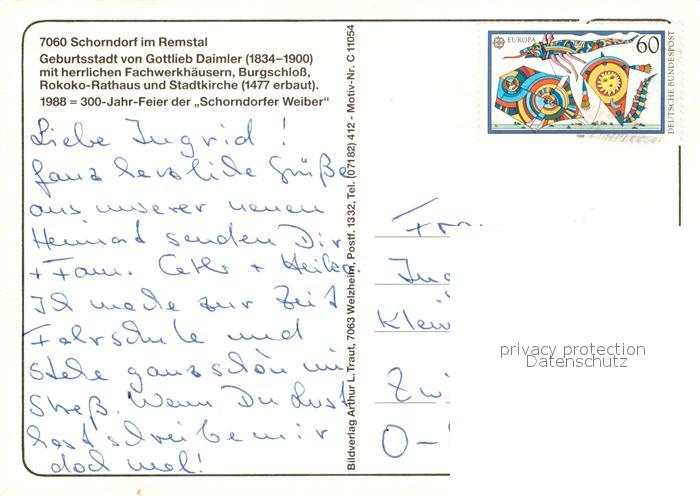 7060 Schorndorf im Remstal
Geburtsstadt von Gottlieb Daimler (1834–1900)
mit herrlichen Fachwerkhäusern, Burgschloß,
Rokoko-Rathaus und Stadtkirche (1477 erbaut).
1988 = 300-Jahr-Feier der „Schorndorfer Weiber“
Liebe Ingrid!
Ganz herzliche Grüße
aus unserer neuen
Heimat senden Dir
+ Fam. + Heike.
Ich mache zur Zeit
Fahrschule und
stehe ganz schön im
Streß. Wenn Du Lust
hast schreibe mir
doch mal!
Bildverlag Arthur L. Traut, 7063 Welzheim, Postf. 1332, Tel. (07182) 412 - Motiv-Nr. C 11054
EUROPA
60
DEUTSCHE BUNDESPOST
1989
Klein
O-
privacy protection
Datenschutz